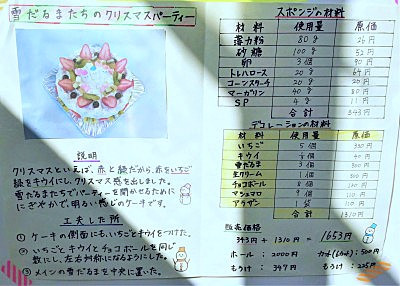 雪だるまたちのクリスマスパーティー
説明
クリスマスといえば、赤と緑だから、赤をいちご
緑をキウイにし、クリスマス感を出しました。
雪だるまたちでパーティーを開かせるために
にぎやかで、明るい感じのケーキです。
工夫した所
① ケーキの側面にもいちごとキウイをつけた。
② いちごとキウイとチョコボールを同じ
数にし、左右対称になるようにした。
③ メインの雪だるまを中央に置いた。
スポンジの材料
材料 使用量 原価
薄力粉 80g 26円
砂糖 100g 52円
卵 3個 90円
トレハロース 20g 64円
コーンスターチ 20g 20円
マーガリン 40g 80円
SP 4g 11円
合計 343円
デコレーションの材料
材料 使用量 原価
いちご 5個
キウイ
雪だるま
生クリーム 1個
チョコボール
マシュマロ
アラザン 1袋
合計 1310円
販売価格
343円 + 1310円 = 1653円
ホール：2000円 カット(6cut)：500円
もうけ：347円 もうけ：225円